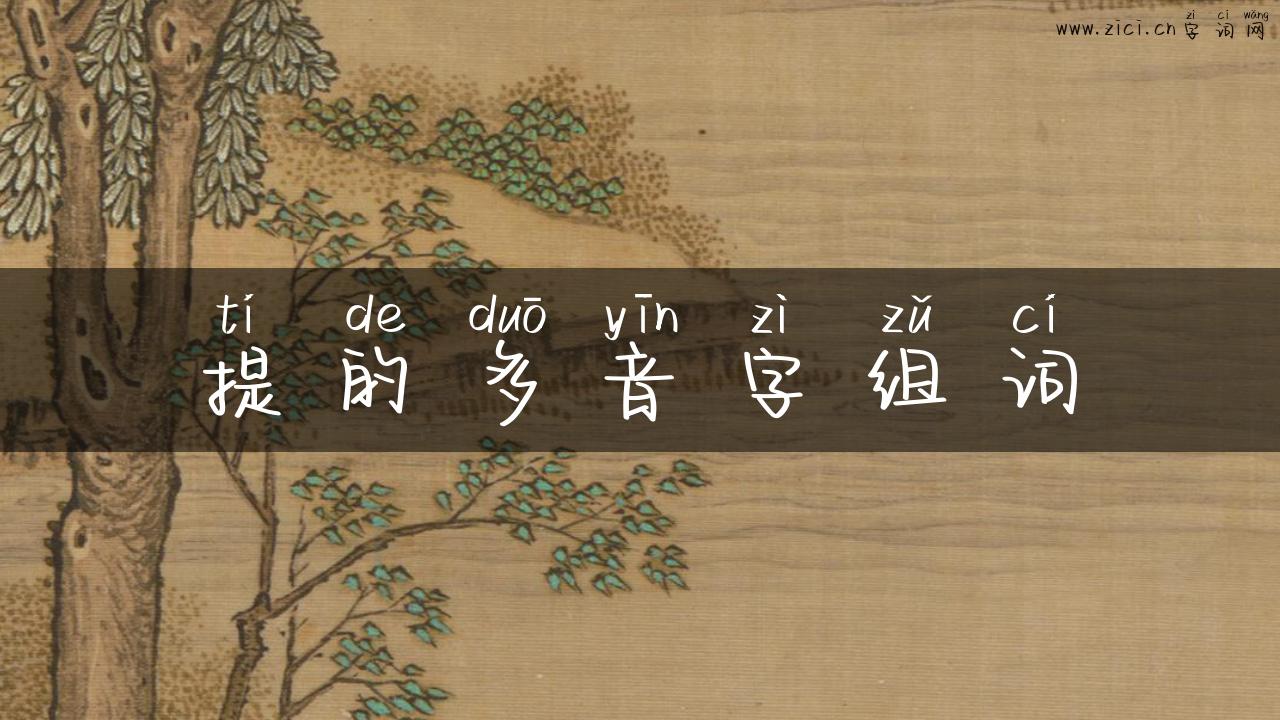 zì cí wǎng
www.zici.cn字词网
tí de duō yīn zì zǔ cí
提的多音字组词